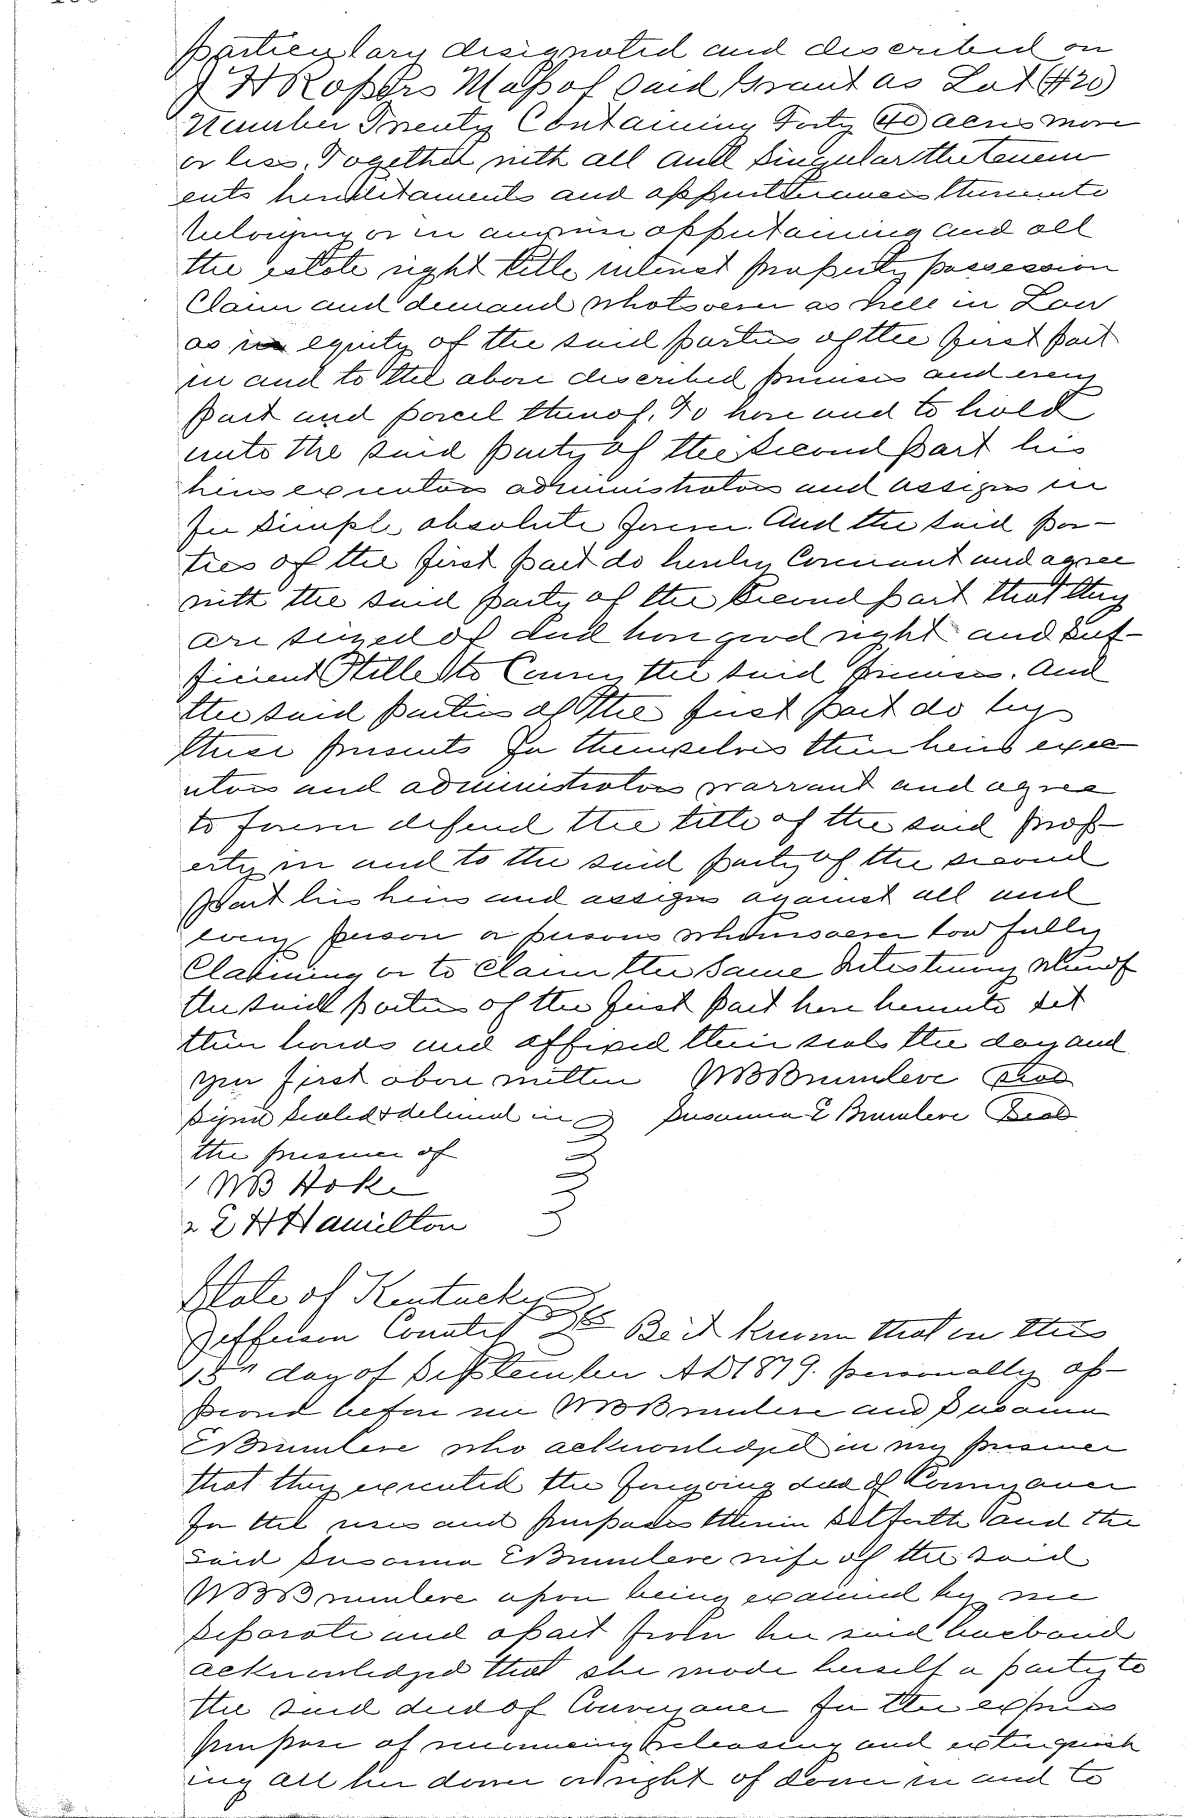 particulary designated and described on
J H Ropers Map of Said Grant as Lot (#20)
Number Twenty Containing Forty (40) acres more
or less, Together with all and Singular the tenem
ents hereditaments and appurtenances thereunto
belonging or in anywise appertaining and all
the estate right title interest property possession
Claim and demand whatsoever as well in Law
as in equity of the said parties of the first part
in and to the above described premises and every
part and parcel thereof. To have and to hold
unto the said party of the Second part his
heirs executors administrators and assigns in
Fee Simple absolute forever. And the said par-
ties of the first part do hereby Covenant and agree
with the said party of the Second part that they
are seized of and have good right and Suf-
ficient title to Convey the said premises. And
the said parties of the first part do by
these presents for themselves their heirs exec
utors and administrators warrant and agree
to forever defend the title of the said prop-
erty in and to the said party of the second
part his heirs and assigns against all and
every person or persons whomsoever lawfully
Claiming or to Claim the Same In testimony whereof
the said parties of the first part have hereunto set
their hands and affixed their seals the day and
year first above written W B Brumleve Seal
Signed Sealed & delivered in Susanna E Brumleve Seal
the presence of
1 W B Hoke
2 E H Hamilton
State of Kentucky
Jefferson County SS Be it known that on this
15th day of September AD 1879. personally ap-
peared before me W B Brumleve and Susanna
E Brumleve who acknowledged in my presence
that they executed the foregoing deed of Conveyance
for the uses and purposes therein Set forth and the
said Susanna E Brumleve wife of the said
W B Brumleve upon being examined by me
Separate and apart from her said husband
acknowledged that she made herself a party to
the said deed of Conveyance for the express
purpose of renouncing releasing and extinguish
ing all her dower or right of dower in and to